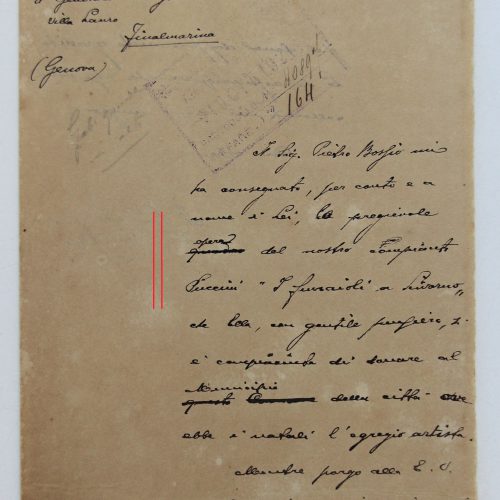 Villa Lauro
Finalmarina
(Genova)
4089
164
Il Sig. Pietro Bossio mi
ha consegnato, per conto e a
nome di Lei, la pregievole
opera
del nostro Compianto
Puccini "I fusaioli a Livorno"
che Ella, con gentile pensiero, si
è compiaciuta di donare al
Municipio
questo della città ove
ebbe i natali l'egregio artista.
Mentre porgo alla E. V.